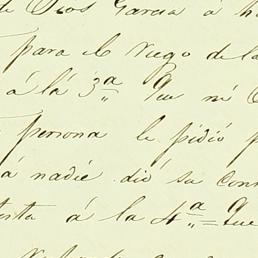 de Dios Garcia á
para el riego de la
á la 3ª Que ni
persona le pidió
á nadie dió su con
á la 4ª = Que